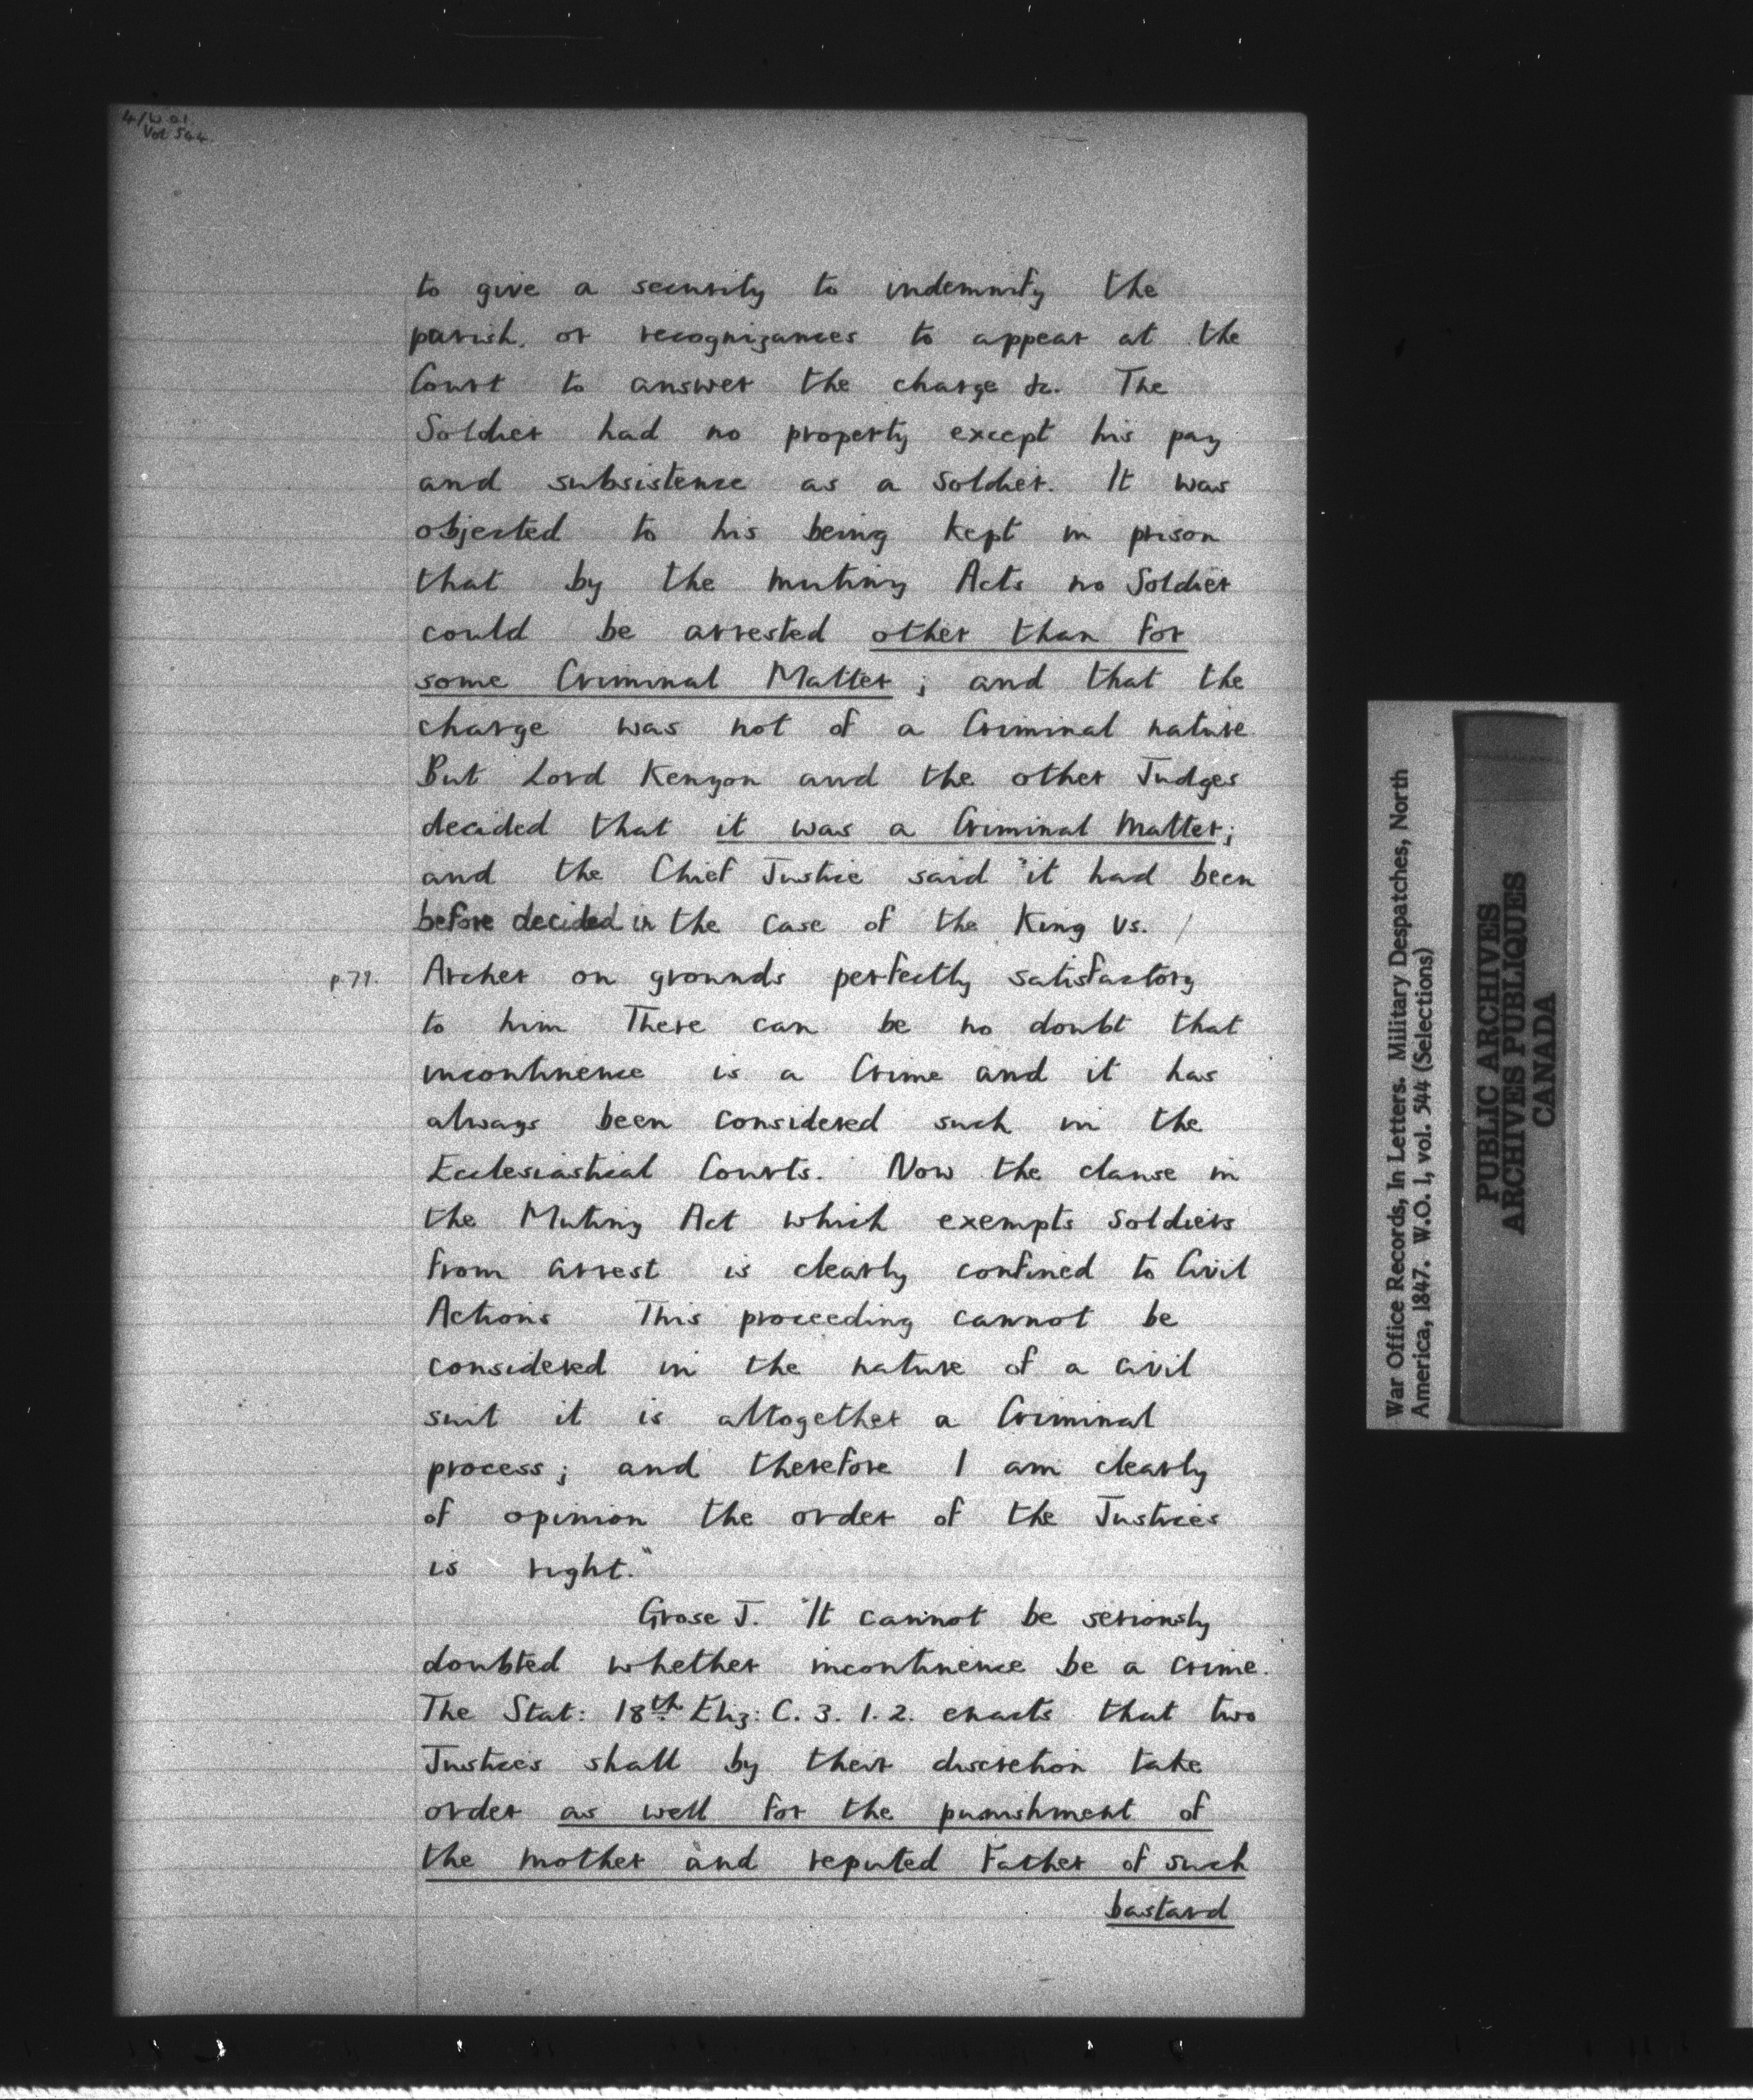 4/W.O.1.
Vol 544.
to give a security to indemnify the
parish, or recognizances to appear at the
Court to answer the charge &c. The
Soldier had no property except his pay
and subsistence as a soldier. It was
objected to his being kept in prison
that by the mutiny Acts no Soldier
could be arrested other than for
some Criminal Matter; and that the
charge was not of a Criminal nature
But Lord Kenyon and the other Judges
decided that it was a Criminal Matter;
and the Chief Justice said "it had been
before decided in the case of the King vs. /
p.79. Archer on grounds perfectly satisfactory
to him There can be no doubt that
incontinence is a Crime and it has
always been considered such in the
Ecclesiastical Courts. Now the clause in
the Mutiny Act which exempts soldiers
from arrest is clearly confined to Civil
Actions This proceeding cannot be
considered in the nature of a civil
suit it is altogether a Criminal
process; and therefore I am clearly
of opinion the order of the Justices
is right."
Grose J. "It cannot be seriously
doubted whether incontinence be a crime.
The Stat: 18th Eliz: C. 3. 1. 2. enacts that two
Justices shall by their discretion take
order as well for the punishment of
the mother and reputed Father of such
bastard
War Office Records, In Letters. Military Despatches, North
America, 1847. W.O. 1, vol. 544 (Selections)
PUBLIC ARCHIVES
ARCHIVES PUBLIQUES
CANADA